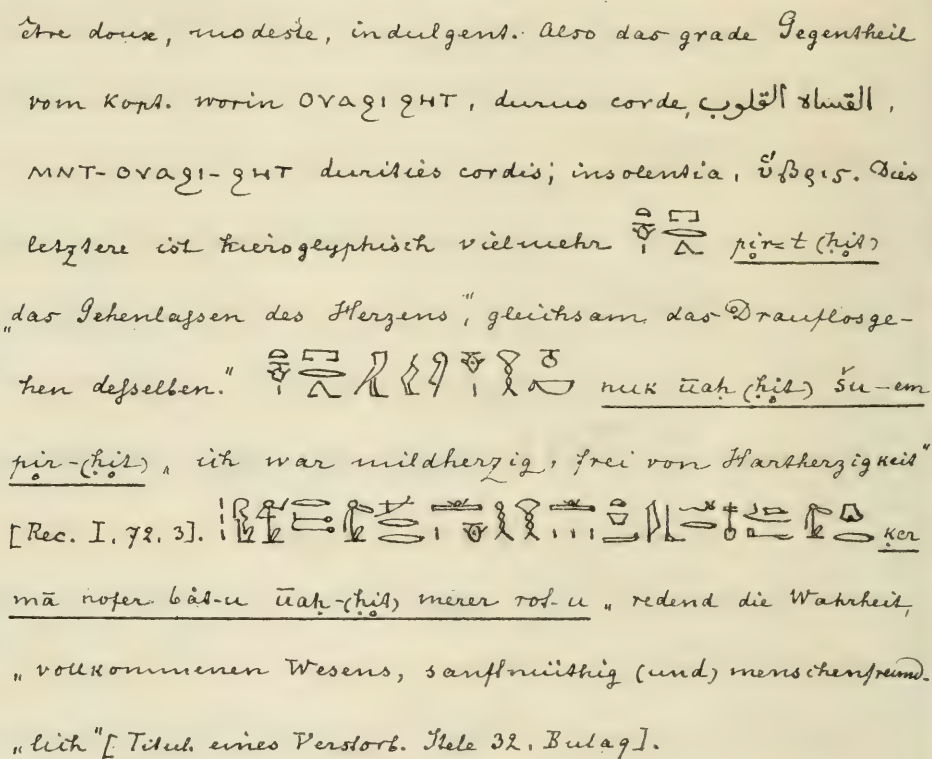 être doux, modeste, indulgent. Also das grade Gegentheil
vom Kopt. worin ⲞⲨⲀϨⲒ ϨⲎⲦ, durus corde, القساة القلوب,
ⲘⲚⲦ-ⲞⲨⲀϨⲒ-ϨⲎⲦ durities cordis; insolentia, ὕβρις. Dies
letztere ist hieroglyphisch vielmehr pir-t (ḥit)
„das Gehenlassen des Herzens", gleichsam das Drauflosge-
hen desselben." nuk ūaḥ (ḥit) šu-em
pir-(ḥit) „ ich war mildherzig, frei von Hartherzigkeit"
[Rec. I, 72, 3]. ḳer
mā nofer báṭ-u ūaḥ-(ḥit) merer rot-u „ redend die Wahrheit,
„ vollkommenen Wesens, sanftmüthig (und) menschenfreund-
„ lich" [Titul. eines Verstorb. Stele 32. Bulaq].